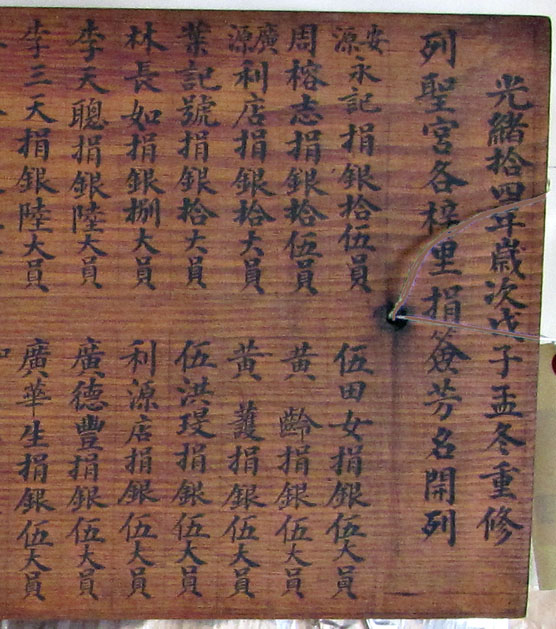 光緒拾四年歲次戊子孟冬重修
列聖宮各梓里捐簽芳名開列
安源永記捐銀拾伍員
周榕志捐銀拾伍員
廣源利店捐銀拾大員
葉記號捐銀拾大員
林長如捐銀捌大員
李天聰捐銀陸大員
李三天捐銀陸大員
伍田女捐銀伍大員
黃齡捐銀伍大員
黃護捐銀伍大員
伍洪捐銀伍大員
利源店捐銀伍大員
廣德豐捐銀伍大員
廣華生捐銀伍大員